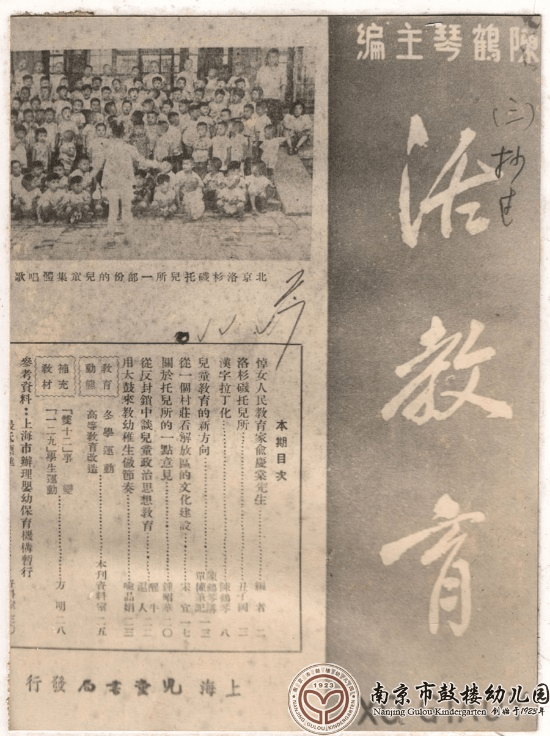 陳鶴琴主編
活教育
(三)
北京洛杉磯托兒所一部份的兒童集體唱歌
本期目次
悼女人民教育家俞慶棠先生……編者 二
洛杉磯托兒所……三
漢字拉丁化……陳鶴琴 八
兒童教育的新方向……陳鶴琴講 一三
從一個村莊看解放區的文化建設……宋官 一七
關於托兒所的一點意見……鍾昭華 二〇
從反封鎖中談兒童政治思想教育……二二
用大鼓來教幼稚生做節奏……喻品娟 二三
教育動態
冬學運動
高等教育改造……本刊資料室 二五
補充教材
「雙十二」事變
「一二九」學生運動……方明 二八
參考資料:上海市辦理嬰幼保育機構暫行
上海兒童書局發行
1923
南京市鼓楼幼儿园
Nanjing Gulou Kindergarten 创始于1923年